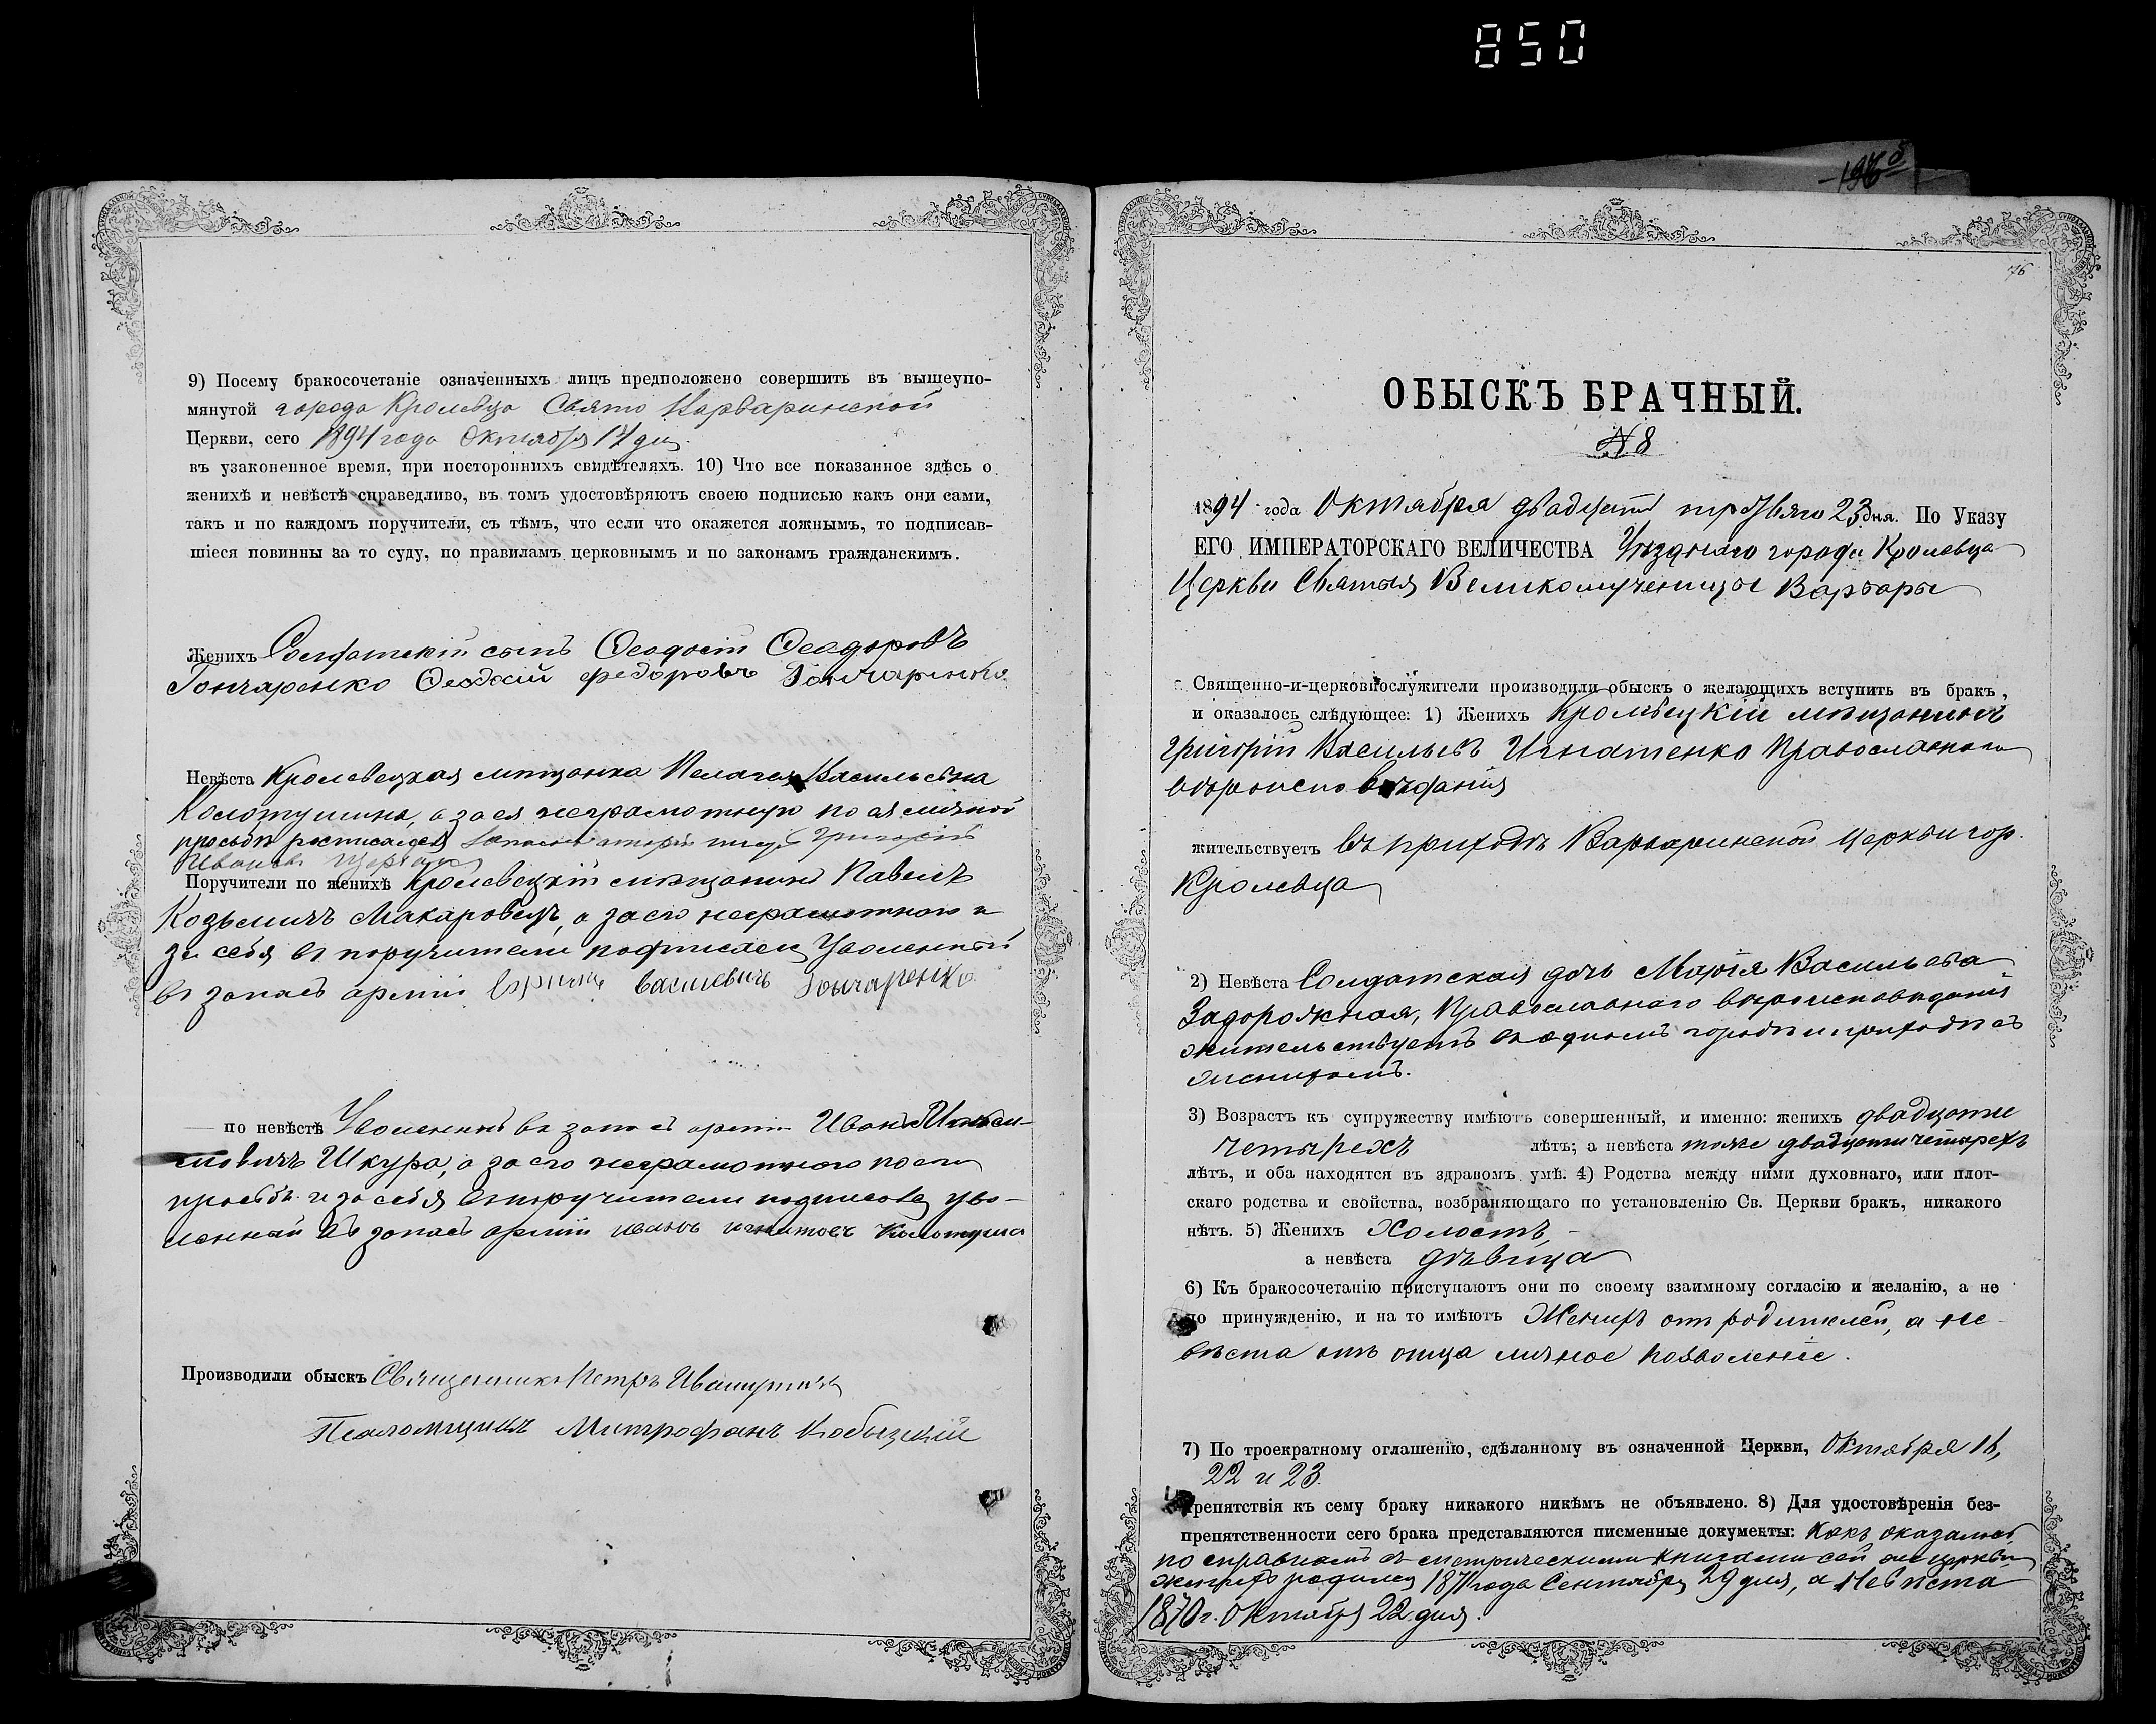 850
9) Посему бракосочетаніе означенныхъ лицъ предположено совершить въ вышеупо-
мянутой города Кролевца Свято Варваринской
Церкви, сего 1894 года Октября 17 дня.
въ узаконенное время, при постороннихъ свидѣтеляхъ. 10) Что все показанное здѣсь о
женихѣ и невѣстѣ справедливо, въ томъ удостовѣряютъ своею подписью какъ они сами,
такъ и по каждомъ поручители, съ тѣмъ, что если что окажется ложнымъ, то подписав-
шіеся повинны за то суду, по правиламъ церковнымъ и по законамъ гражданскимъ.
Женихъ Солдатскій сынъ Ѳеодосій Ѳеодоровъ
Гончаренко Ѳеодосій Федоровъ Гончаренко
Невѣста Кролевецкая мѣщанка Пелагея Васильевна
Колотушина, а за ея неграмотную по ея личной
просьбѣ росписался Григорій
Ивановъ
Поручители по женихѣ Кролевецкій мѣщанинъ Павелъ
Козьмичъ Макаровецъ, а за его неграмотного и
за себя въ поручители подписался Уволенный
въ запасъ арміи Василевичъ Гончаренко
по невѣстѣ Уволенный въ запасъ арміи Иванъ
Шкура, а за его неграмотного по его
просьбѣ и за себя въ поручители подписался уво-
ленный въ запасъ арміи иванъ Колотуша
Производили обыскъ Священникъ Петръ
Псаломщикъ Митрофанъ Кобызскій
76
ОБЫСКЪ БРАЧНЫЙ.
N. 8
1894 года Октября двадцать третьяго 23 дня. По Указу
ЕГО ИМПЕРАТОРСКАГО ВЕЛИЧЕСТВА Уѣзднаго города Кролевца
Церкви Святыя Великомученицы Варвары
Священно-и-церковнослужители производили обыскъ о желающихъ вступить въ бракъ,
и оказалось слѣдующее: 1) Женихъ Кролевецкій мѣщанинъ
Григорій Васильевъ Игнатенко Православнаго
вѣроисповѣданія
жительствуетъ въ приходѣ Варваринской церкви гор.
Кролевца
2) Невѣста Солдатская дочь Марія Васильева
Задорожная, Православнаго вѣроисповѣданія
жительствуетъ въ одномъ городѣ и приходѣ съ
женихомъ.
3) Возрастъ къ супружеству имѣютъ совершенный, и именно: женихъ двадцати
четырехъ лѣтъ; а невѣста тоже двадцати четырехъ
лѣтъ, и оба находятся въ здравомъ умѣ. 4) Родства между ними духовнаго, или плот-
скаго родства и свойства, возбраняющаго по установленію Св. Церкви бракъ, никакого
нѣтъ. 5) Женихъ Холостъ,
а невѣста дѣвица
6) Къ бракосочетанію приступаютъ они по своему взаимному согласію и желанію, а не
по принужденію, и на то имѣютъ Женихъ отъ родителей, а не-
вѣста отъ отца личное позволеніе.
7) По троекратному оглашенію, сдѣланному въ означенной Церкви, Октября 16,
22 и 23.
препятствія къ сему браку никакого никѣмъ не объявлено. 8) Для удостовѣренія без-
препятственности сего брака представляются писменные документы: Какъ оказалось
по справкамъ съ метрическими книгами сей же церкви
женихъ родился 1871 года Сентября 29 дня, а Невѣста
1870 г. Октября 22 дня.